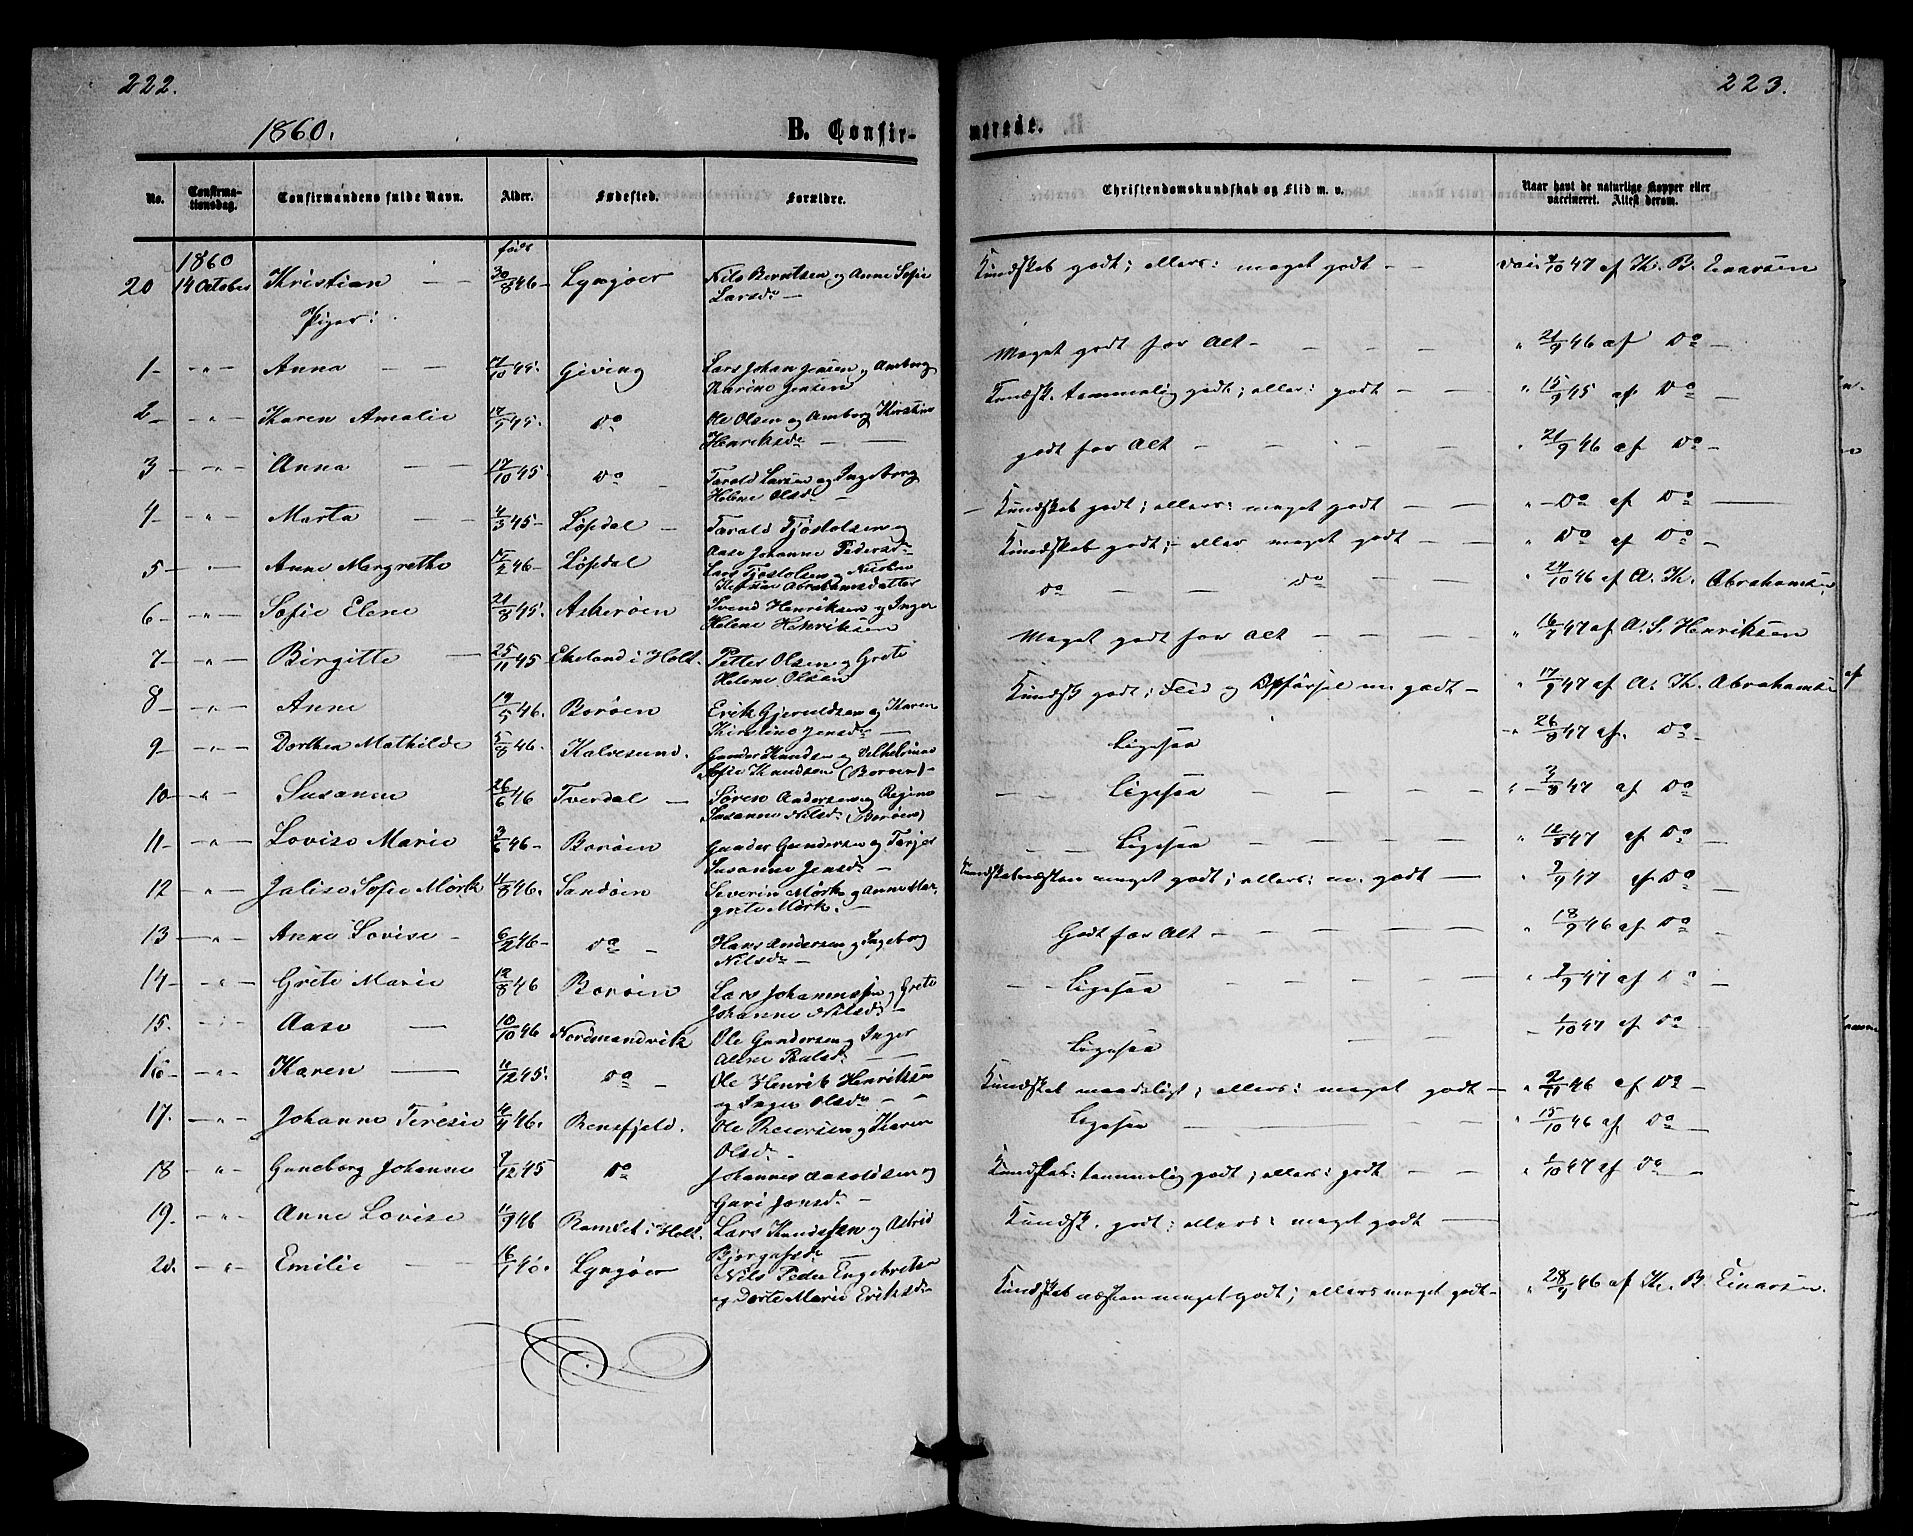 222.
223.
1860.
B. Confir-
merede.
No.
Confirma-
tionsdag.
Confirmandens fulde Navn.
Alder.
Fødested.
Forældre.
Christendomskundskab og Flid m. v.
Naar havt de naturlige Kopper eller
vaccineret. Attest derom.
1860
født
20 14 October Kristian 30/8 46 Lyngöer Nils Berntsen og Anne Sofie
Larsd. Kundskab godt; ellers: meget godt 47 af Th. B. Einarsen
Piger:
1 Anna 17/10 45. Giving Lars Johan Jensen og
Karine Jensen Meget godt for Alt 21/9 46 af Do
2 Karen Amalie 45. Do Ole Olsen og Kirstine
Henriksd. Kundsk. temmelig godt; ellers: godt 15/9 45 af Do
3 Anna 17/10 45. Do Tarald Larsen og Ingeborg
Helene Olsd. godt for Alt 21/9 46 af Do
4 Marta 4/3 45 Löpdal Tarald Tjöstolsen og
Aase Johanne Pedersd. Kundskab godt; ellers: meget godt Do af Do
5 Anne Margrethe 46 Löpdal Lars Tjöstolsen og
Abrahamsdatter Kundskab godt; eller meget godt Do af Do
6 Sofie Elene 21/8 45. Askeröen Svend Henriksen og Inger
Helene Henriksen Do Do 24/10 46 af A. Th. Abrahamsen
7 Birgitte 25/11 45 Ekeland i Holt. Petter Olsen og Grete
Helene Olsen Meget godt for Alt 16/7 47 af A. S. Henriksen
8 Anne 19/5 46. Boröen Erik Gjeruldsen og Karen
Kirstine Jensd. Kundsk godt; Flid og Opförsel m. godt 17/9 47 af A. Th. Abrahamsen
9 Dorthea Mathilde 5/8 46. Kalvesund. Gunder Knudsen og Vilhelmine
Sofie Knudsen (Boröen) Ligesaa 26/8 47 af Do
10 Susanne 26/6 46 Tverdal Sören Andersen og Regine
Susanne Nilsd. (Boröen) Ligesaa 3/8 47 af Do
11 Lovise Marie 3/6 46 Boröen Gunder Gundersen og Tarjer
Susanne Jensd. Ligesaa 12/8 47 af Do
12 Jalise Sofie Mörk 11/8 46. Sandöen Severin Mörk og Anne Mar-
grete Mörk. Kundskab næsten meget godt; ellers: m. godt 47 af Do
13 Anne Lovise 6/2 46 Do Hans Andersen og Ingeborg
Nilsd. Godt for Alt 18/9 46 af Do
14 Grete Marie 12/8 46 Boröen Lars Johannesen og Grete
Johanne Nilsd. Ligesaa 47 af Do
15. Aase 10/10 46 Nordmandvik Ole Gundersen og Inger
Paulsd. Ligesaa 1/10 47 af Do
16 Karen 11/12 45. Do Ole Henrik Henriksen
og Inger Olsd. Kundskab maadeligt; ellers: meget godt 46 af Do
17. Johanne Teresie 46. Rensfjeld. Ole Reiersen og Karen
Olsd. Ligesaa 15/10 46 af Do
18 Guneborg Johanne 7/12 45 Do Johannes Aasoldsen og
Guri Jensd. Kundskab: temmelig godt; ellers: godt 1/10 47 af Do
19. Anne Lovise 11/9 46 Ramdet i Holt. Lars Knudssen og Astrid
Bjørgufsd. Kundsk. godt; ellers: meget godt
20. Emilie 16/1 46. Lyngöer Nils Peder Engebretsen
og Dorte Marie Eriksd. Kundskab næsten meget godt; ellers meget godt 28/9 46 af Th. B. Einarsen.